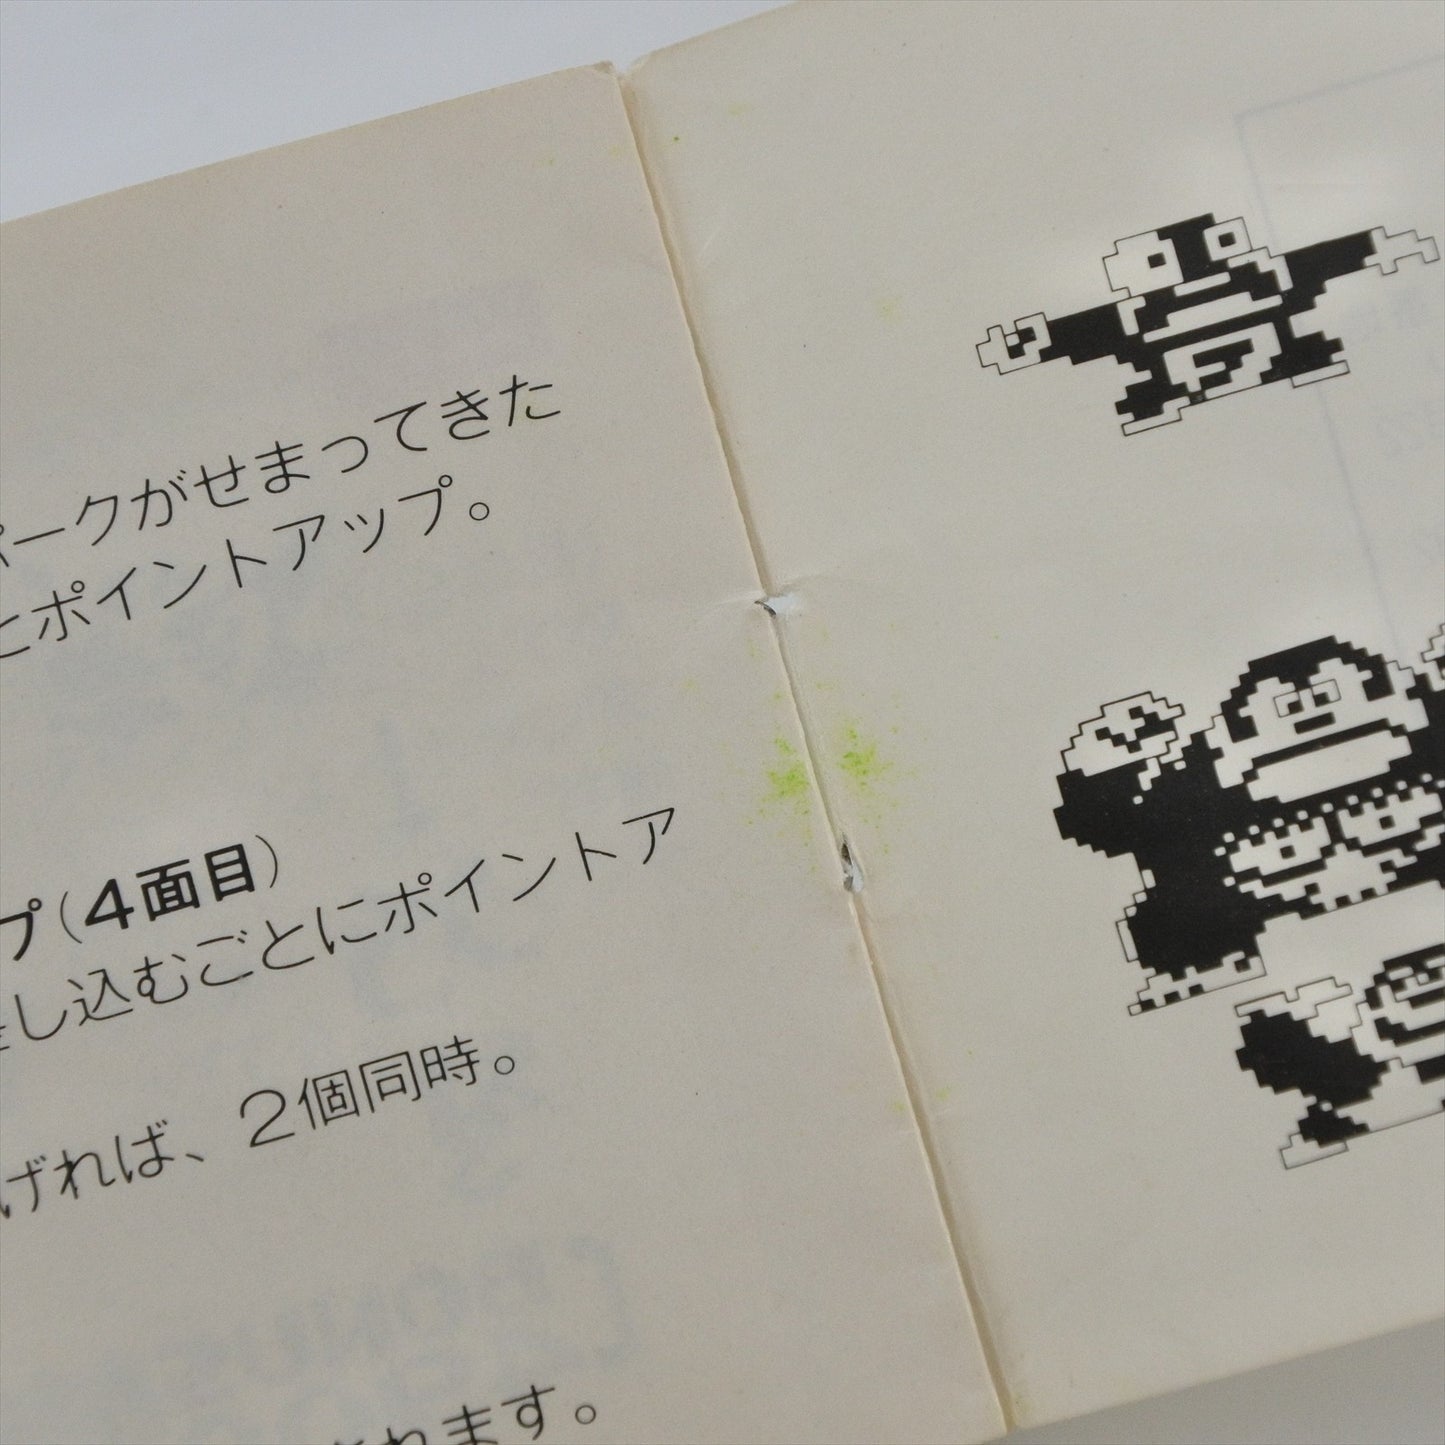 パークがせまってきた
とポイントアップ。
プ(4面目)
差し込むごとにポイントア
げれば、2個同時。
されます。